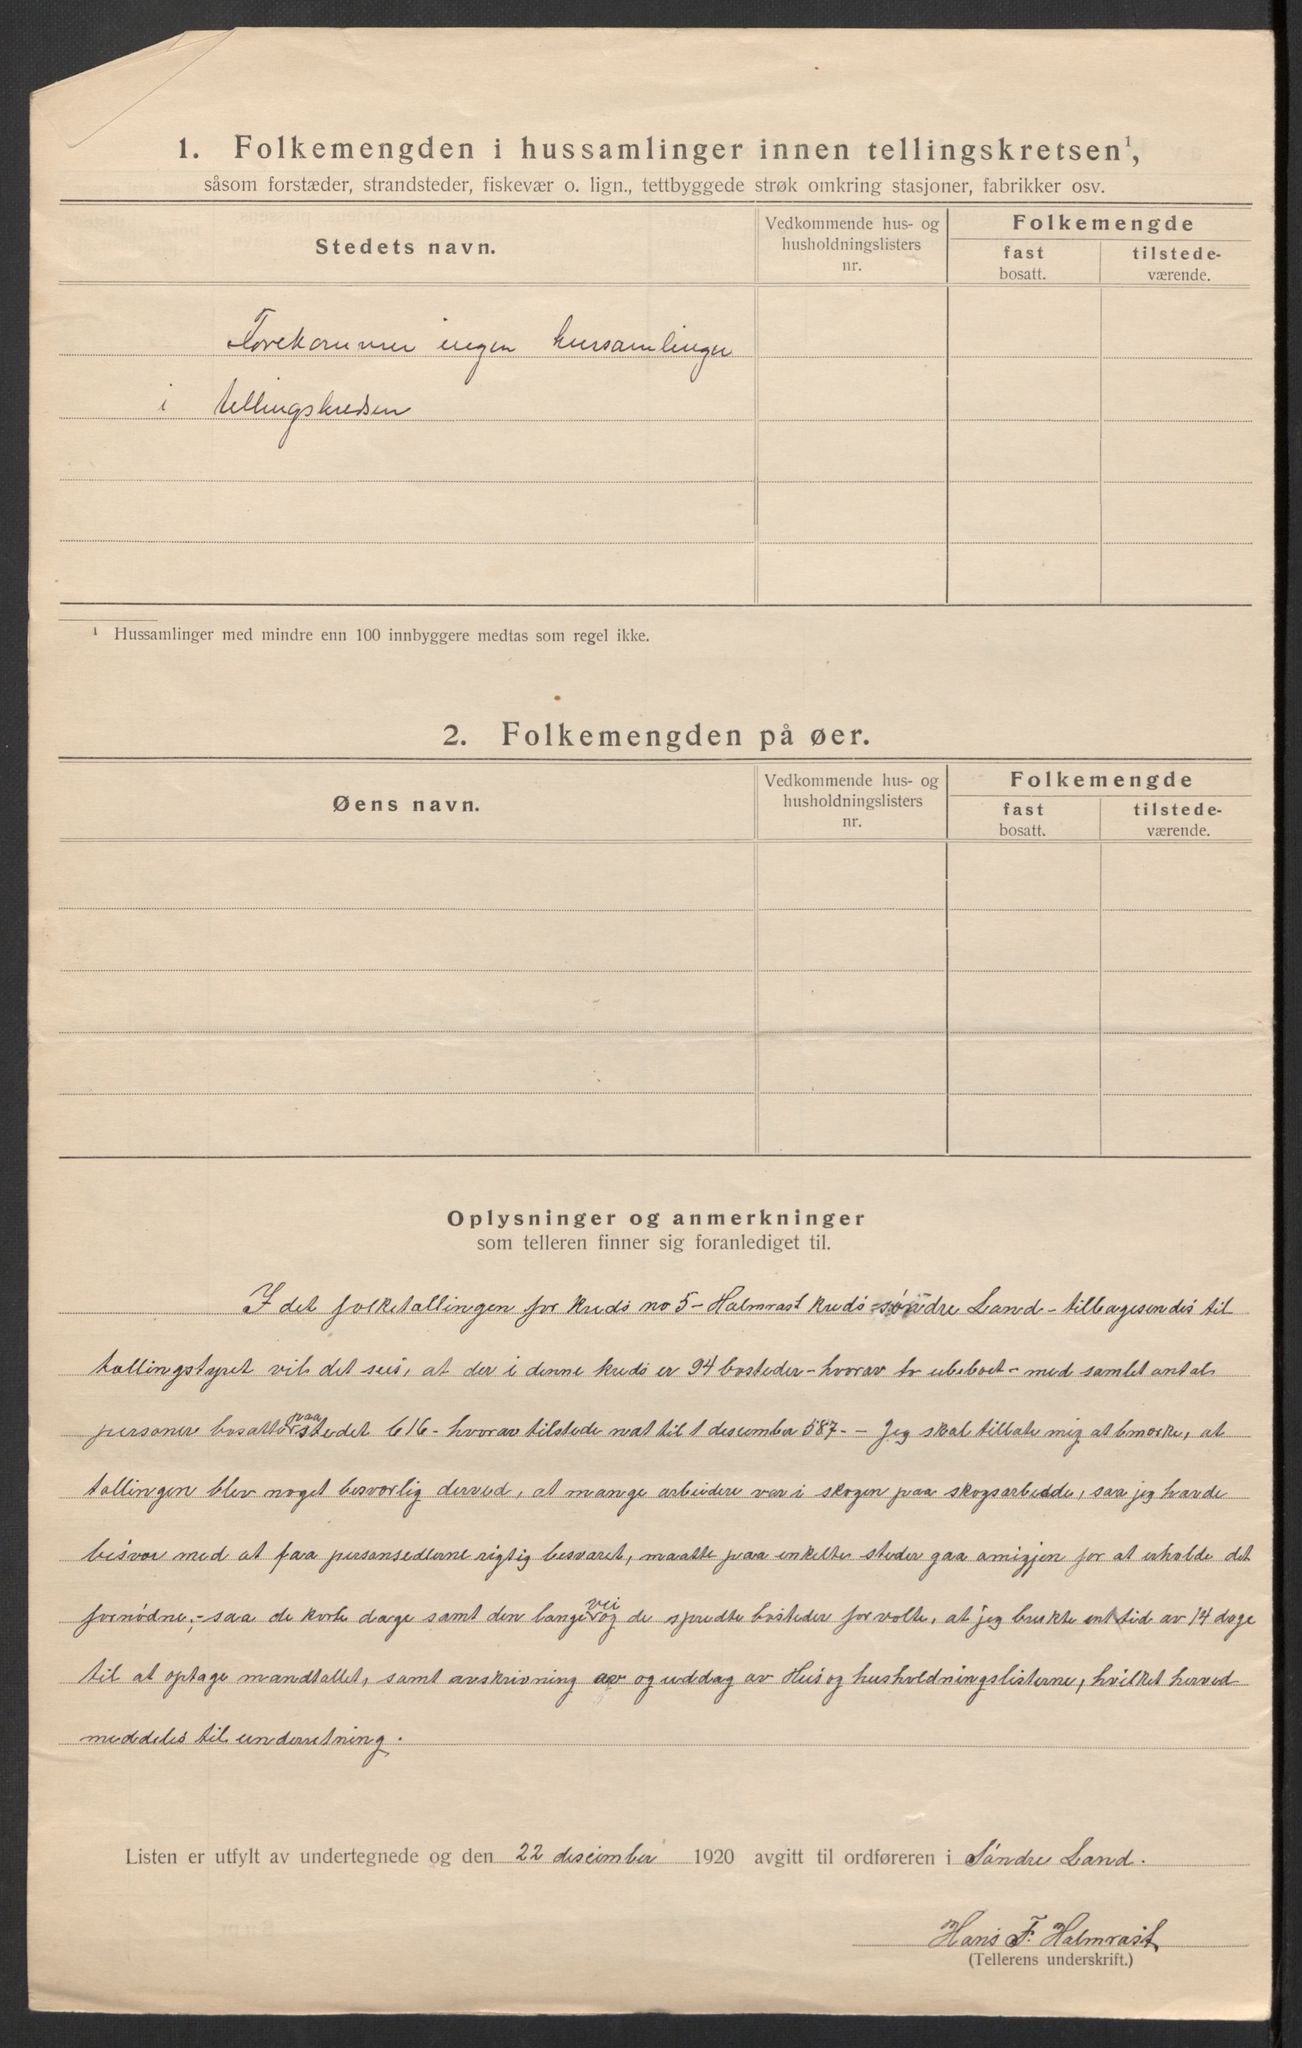 1. Folkemengden i hussamlinger innen tellingskretsen¹,
såsom forstæder, strandsteder, fiskevær o. lign., tettbyggede strøk omkring stasjoner, fabrikker osv.
Stedets navn.
Vedkommende hus- og
husholdningslisters
nr.
Folkemengde
fast
bosatt.
tilstede-
værende.
Forekommer ingen hussamlinger
i tellingskredsen
¹ Hussamlinger med mindre enn 100 innbyggere medtas som regel ikke.
2. Folkemengden på øer.
Øens navn.
Vedkommende hus- og
husholdningslisters
nr.
Folkemengde
fast
bosatt.
tilstede-
værende.
Oplysninger og anmerkninger
som telleren finner sig foranlediget til.
I det folketællingen for kreds no 5 - Halmrast kreds - søndre Land - tilbagesendes til
tællingstyret vil det sees, at der i denne kreds er 94 bosteder - hvorav to ubeboet - med samlet antal
personer bosatte paa stedet 616 - hvorav tilstede nat til 1 desember 587 - - Jeg skal tillate mig at bmærke, at
tællingen blev noget besværlig derved, at mange arbeidere var i skogen paa skogsarbeide, saa jeg havde
besvær med at faa personsedlerne rigtig besvaret, maatte paa enkelte steder gaa omigjen for at erholde det
fornødne, - saa de korte dage samt den lange vei og de spredte bosteder forvolte, at jeg brukte en tid av 14 dage
til at optage mandtallet, samt avskrivning av og uddag av Hus og husholdningslisterne, hvilket herved
meddeles til underretning.
Listen er utfylt av undertegnede og den 22 desember 1920 avgitt til ordføreren i Søndre Land.
Hans F. Halmrast
(Tellerens underskrift.)